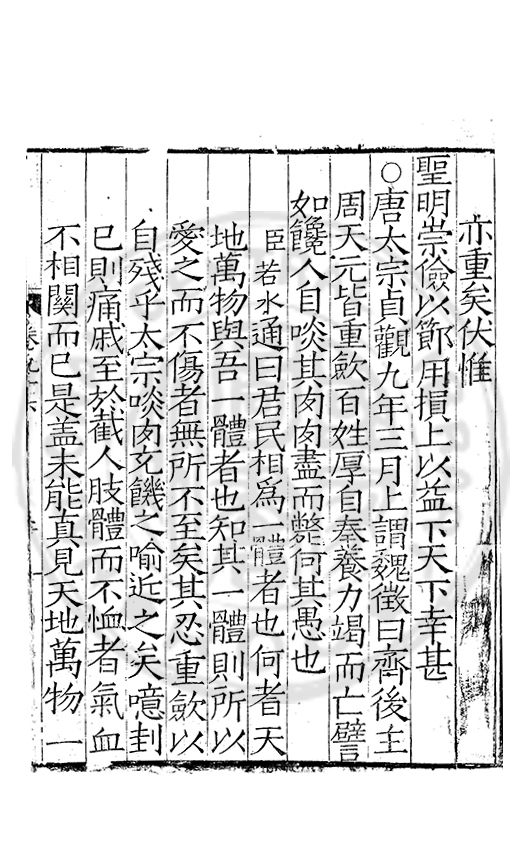 亦重矣伏惟
聖明崇儉以節用損上以益下天下幸甚
○唐太宗貞觀九年三月上謂魏徵曰齊後主
周天元皆重歛百姓厚自奉養力竭而亡譬
如饞人自啖其肉肉盡而斃何其愚也
臣若水通曰君民相爲一體者也何者天
地萬物與吾一體者也知其一體則所以
愛之而不傷者無所不至矣其忍重歛以
自殘乎太宗啖肉充饑之喻近之矣噫刲
己則痛戚至於截人肢體而不恤者氣血
不相關而已是盖未能真見天地萬物一